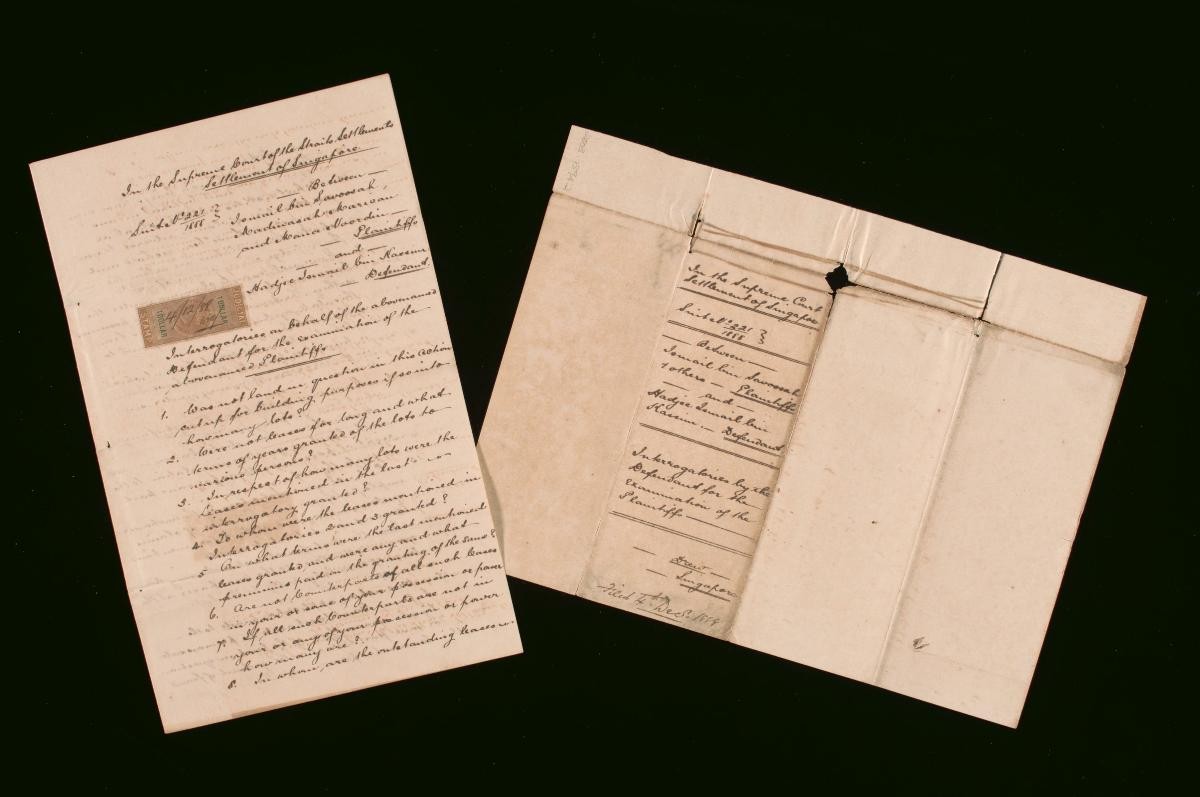 In the Supreme Court of the Straits Settlements
Settlement of Singapore
Suit No 221
1888
Between
Ismail bin Savoosah,
Madinasah Marican
and Mana Noordin
Plaintiffs
and
Hadjee Ismail bin Kassim
Defendant.
4/12/88
Interrogatories on behalf of the abovenamed
Defendant for the examination of the
abovenamed Plaintiffs
1. Was not land in question in this action
cut up for building purposes if so into
how many lots?
2. Were not leases for long and what
terms of years granted of the lots to
various persons?
3. In respect of how many lots were the
leases mentioned in the last
interrogatory granted?
4. To whom were the leases mentioned in
Interrogatories 2 and 3 granted?
5. On what terms were the last mentioned
leases granted and were any and what
premiums paid on the granting of the same?
6. Are not Counterparts of all such leases
in your or some of your possession or power
7. If all such Counterparts are not in
your or any of your possession or power
how many are?
8. In whom are the outstanding leases
In the Supreme Court
Settlement of Singapore
Suit No 221
1888
Between
Ismail bin Savoosah
& others Plaintiffs
and
Hadjee Ismail bin
Kassim Defendant
Interrogatories by the
Defendant for the
examination of the
Plaintiffs
Drew
Singapore
Filed 4th Decr. 1888